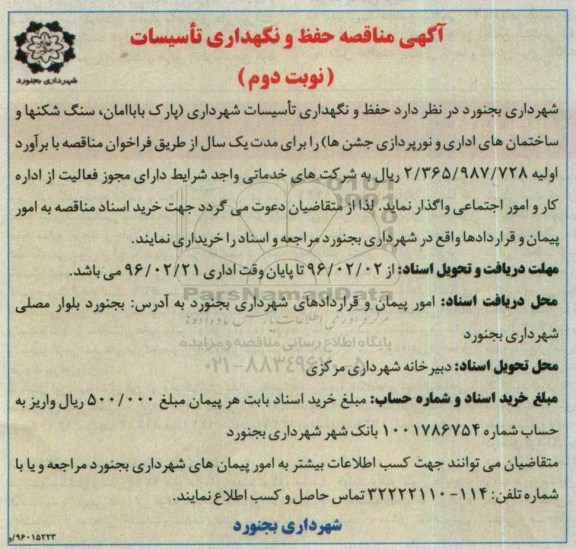 آگهی مناقصه حفظ و نگهداری تأسیسات
(نوبت دوم)
شهرداری بجنورد
شهرداری بجنورد در نظر دارد حفظ و نگهداری تأسیسات شهرداری (پارک باباامان، سنگ شکنها و
ساختمان های اداری و نورپردازی جشن ها) را برای مدت یک سال از طریق فراخوان مناقصه با برآورد
اولیه ۲/۳۶۵/۹۸۷/۷۲۸ ریال به شرکت های خدماتی واجد شرایط دارای مجوز فعالیت از اداره
کار و امور اجتماعی واگذار نماید. لذا از متقاضیان دعوت می گردد جهت خرید اسناد مناقصه به امور
پیمان و قراردادها واقع در شهرداری بجنورد مراجعه و اسناد را خریداری نمایند.
مهلت دریافت و تحویل اسناد: از ۹۶/۰۲/۰۲ تا پایان وقت اداری ۹۶/۰۲/۲۱ می باشد.
محل دریافت اسناد: امور پیمان و قراردادهای شهرداری بجنورد به آدرس: بجنورد بلوار مصلی
شهرداری بجنورد
محل تحویل اسناد: دبیرخانه شهرداری مرکزی
مبلغ خرید اسناد و شماره حساب: مبلغ خرید اسناد بابت هر پیمان مبلغ ۵۰۰/۰۰۰ ریال واریز به
حساب شماره ۱۰۰۱۷۸۶۷۵۴ بانک شهر شهرداری بجنورد
متقاضیان می توانند جهت کسب اطلاعات بیشتر به امور پیمان های شهرداری بجنورد مراجعه و یا با
شماره تلفن: ۱۱۴-۳۲۲۲۲۱۱۰ تماس حاصل و کسب اطلاع نمایند.
شهرداری بجنورد
۹۶۰۱۵۲۲۳/و
ParsNamadData
پایگاه اطلاع رسانی مناقصه و مزایده